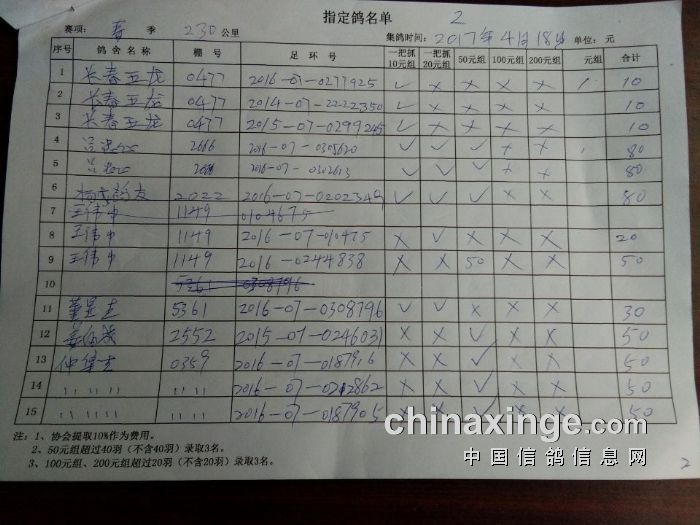 指定鸽名单 2
赛项: 春 季 230公里 集鸽时间: 2017年4月18日 单位: 元
序号 鸽舍名称 棚号 足环号 一把抓10元组 一把抓20元组 50元组 100元组 200元组 元组 合计
1 长春五龙 0477 2016-07-0277925 ✓ × × × × 10
2 长春五龙 0477 2014-07-2222350 ✓ × × × × 10
3 长春五龙 0477 2015-07-0299245 ✓ × × × × 10
4 2666 2016-07-0305620 ✓ ✓ ✓ × × 80
5 2016-07-0302613 ✓ ✓ ✓ × × 80
6 2022 2016-07-0202349 ✓ ✓ ✓ × × 80
7 王伟中 1149 0104675
8 王伟中 1149 2016-07-010475 × ✓ × × × 20
9 王伟中 1149 2016-0244838 × × 50 × × 50
10 5361 0308796
11 5361 2016-07-0308796 ✓ ✓ × × × 30
12 2552 2015-07-0246031 × × ✓ × × 50
13 0359 2016-07-0187916 × × ✓ × × 50
14 〃 〃 〃 〃 〃 2016-07-0242862 × × ✓ × × 50
15 〃 〃 〃 〃 〃 2016-07-0187905 × × ✓ × × 50
注: 1、协会提取10%作为费用。
2、50元组超过40羽(不含40羽)录取3名。
3、100元组、200元组超过20羽(不含20羽)录取3名。
chinaxinge.com
中国信鸽信息网
2